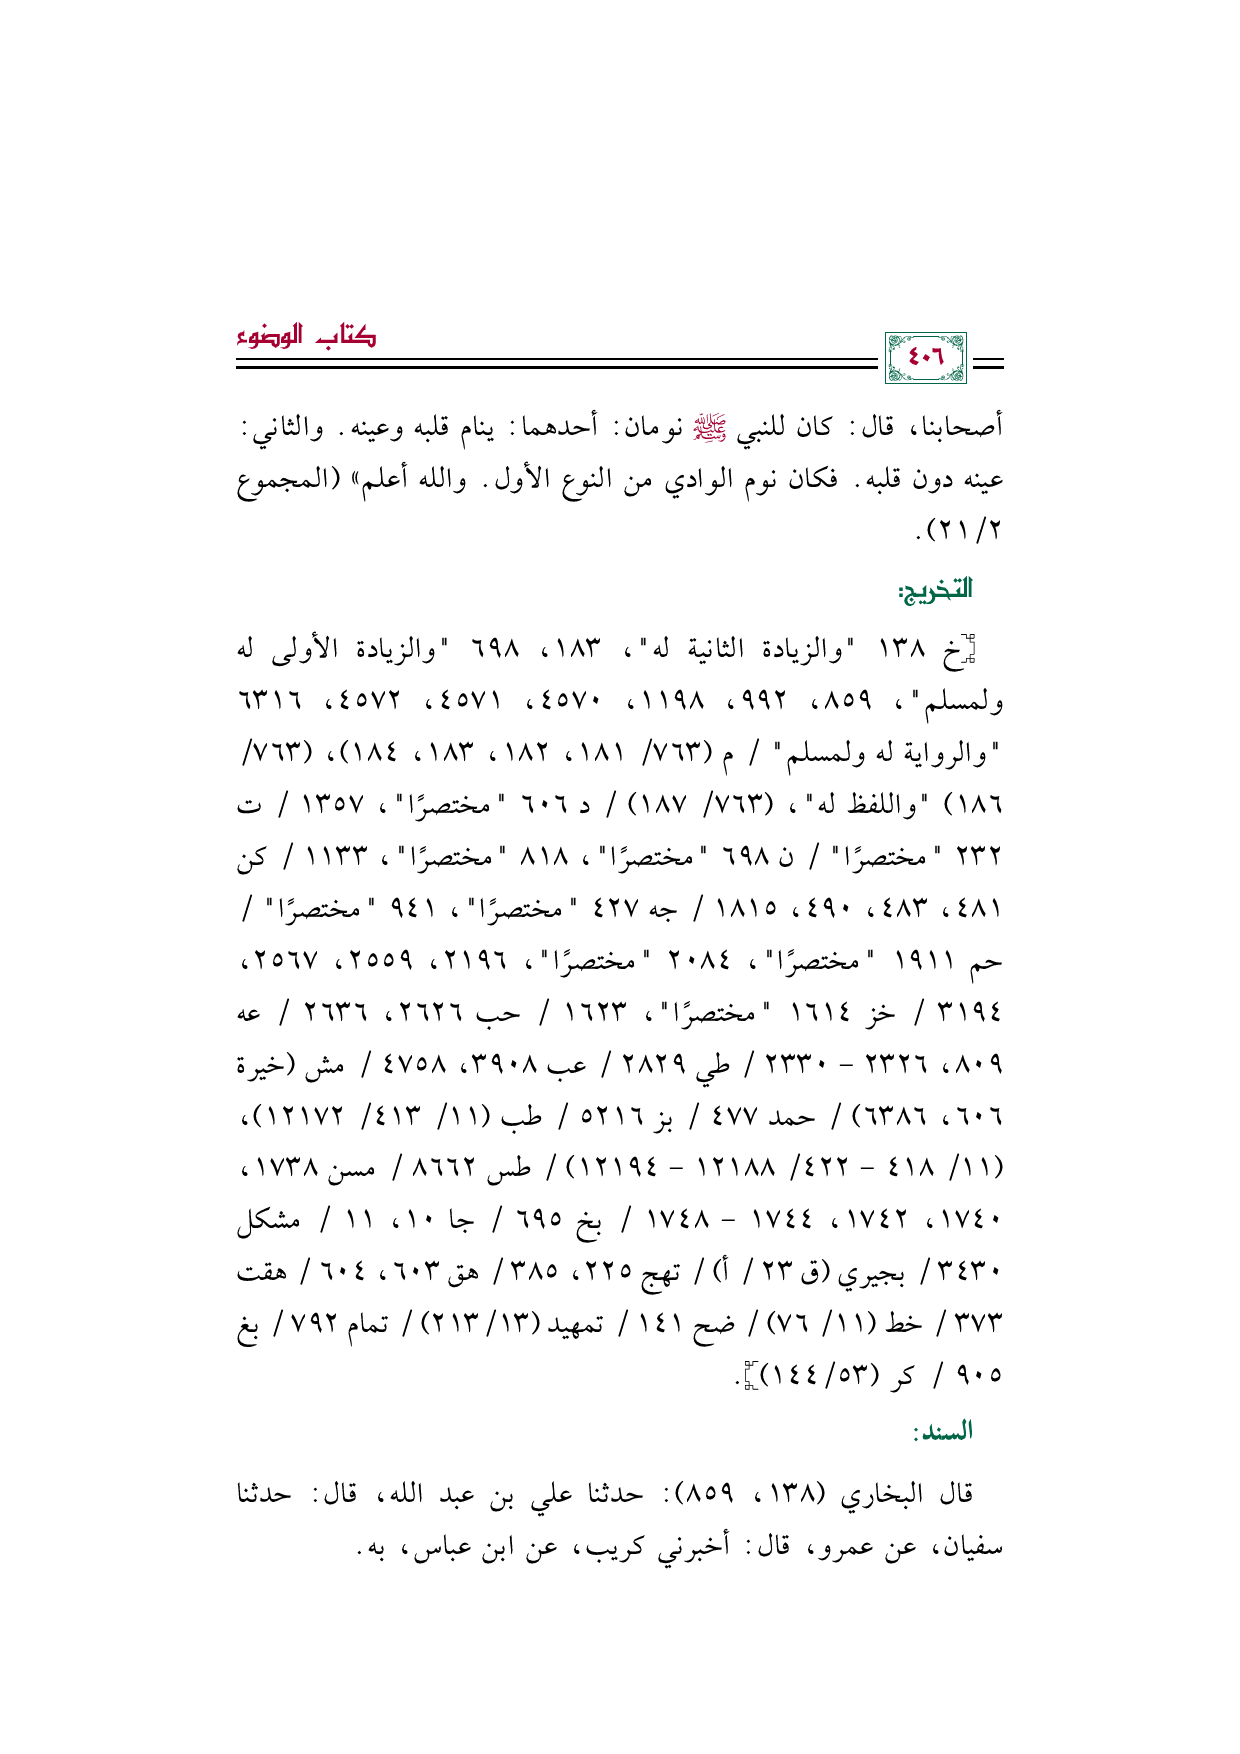 كتاب الوضوء
٤٠٦
أصحابنا، قال: كان للنبي ﷺ نومان: أحدهما: ينام قلبه وعينه. والثاني:
عينه دون قلبه. فكان نوم الوادي من النوع الأول. والله أعلم» (المجموع
٢/ ٢١).
التخريج:
[خ ١٣٨ "والزيادة الثانية له"، ١٨٣، ٦٩٨ "والزيادة الأولى له
ولمسلم"، ٨٥٩، ٩٩٢، ١١٩٨، ٤٥٧٠، ٤٥٧١، ٤٥٧٢، ٦٣١٦
"والرواية له ولمسلم" / م (٧٦٣/ ١٨١، ١٨٢، ١٨٣، ١٨٤)، (٧٦٣/
١٨٦) "واللفظ له"، (٧٦٣/ ١٨٧) / د ٦٠٦ "مختصرًا"، ١٣٥٧ / ت
٢٣٢ "مختصرًا" / ن ٦٩٨ "مختصرًا"، ٨١٨ "مختصرًا"، ١١٣٣ / كن
٤٨١، ٤٨٣، ٤٩٠، ١٨١٥ / جه ٤٢٧ "مختصرًا"، ٩٤١ "مختصرًا" /
حم ١٩١١ "مختصرًا"، ٢٠٨٤ "مختصرًا"، ٢١٩٦، ٢٥٥٩، ٢٥٦٧،
٣١٩٤ / خز ١٦١٤ "مختصرًا"، ١٦٢٣ / حب ٢٦٢٦، ٢٦٣٦ / عه
٨٠٩، ٢٣٢٦ - ٢٣٣٠ / طي ٢٨٢٩ / عب ٣٩٠٨، ٤٧٥٨ / مش (خيرة
٦٠٦، ٦٣٨٦) / حمد ٤٧٧ / بز ٥٢١٦ / طب (١١/ ٤١٣/ ١٢١٧٢)،
(١١/ ٤١٨ - ٤٢٢/ ١٢١٨٨ - ١٢١٩٤) / طس ٨٦٦٢ / مسن ١٧٣٨،
١٧٤٠، ١٧٤٢، ١٧٤٤ - ١٧٤٨ / بخ ٦٩٥ / جا ١٠، ١١ / مشكل
٣٤٣٠ / بجيري (ق ٢٣ / أ) / تهج ٢٢٥، ٣٨٥ / هق ٦٠٣، ٦٠٤ / هقت
٣٧٣ / خط (١١/ ٧٦) / ضح ١٤١ / تمهيد (١٣/ ٢١٣) / تمام ٧٩٢ / بغ
٩٠٥ / كر (٥٣/ ١٤٤)].
السند:
قال البخاري (١٣٨، ٨٥٩): حدثنا علي بن عبد الله، قال: حدثنا
سفيان، عن عمرو، قال: أخبرني كريب، عن ابن عباس، به.